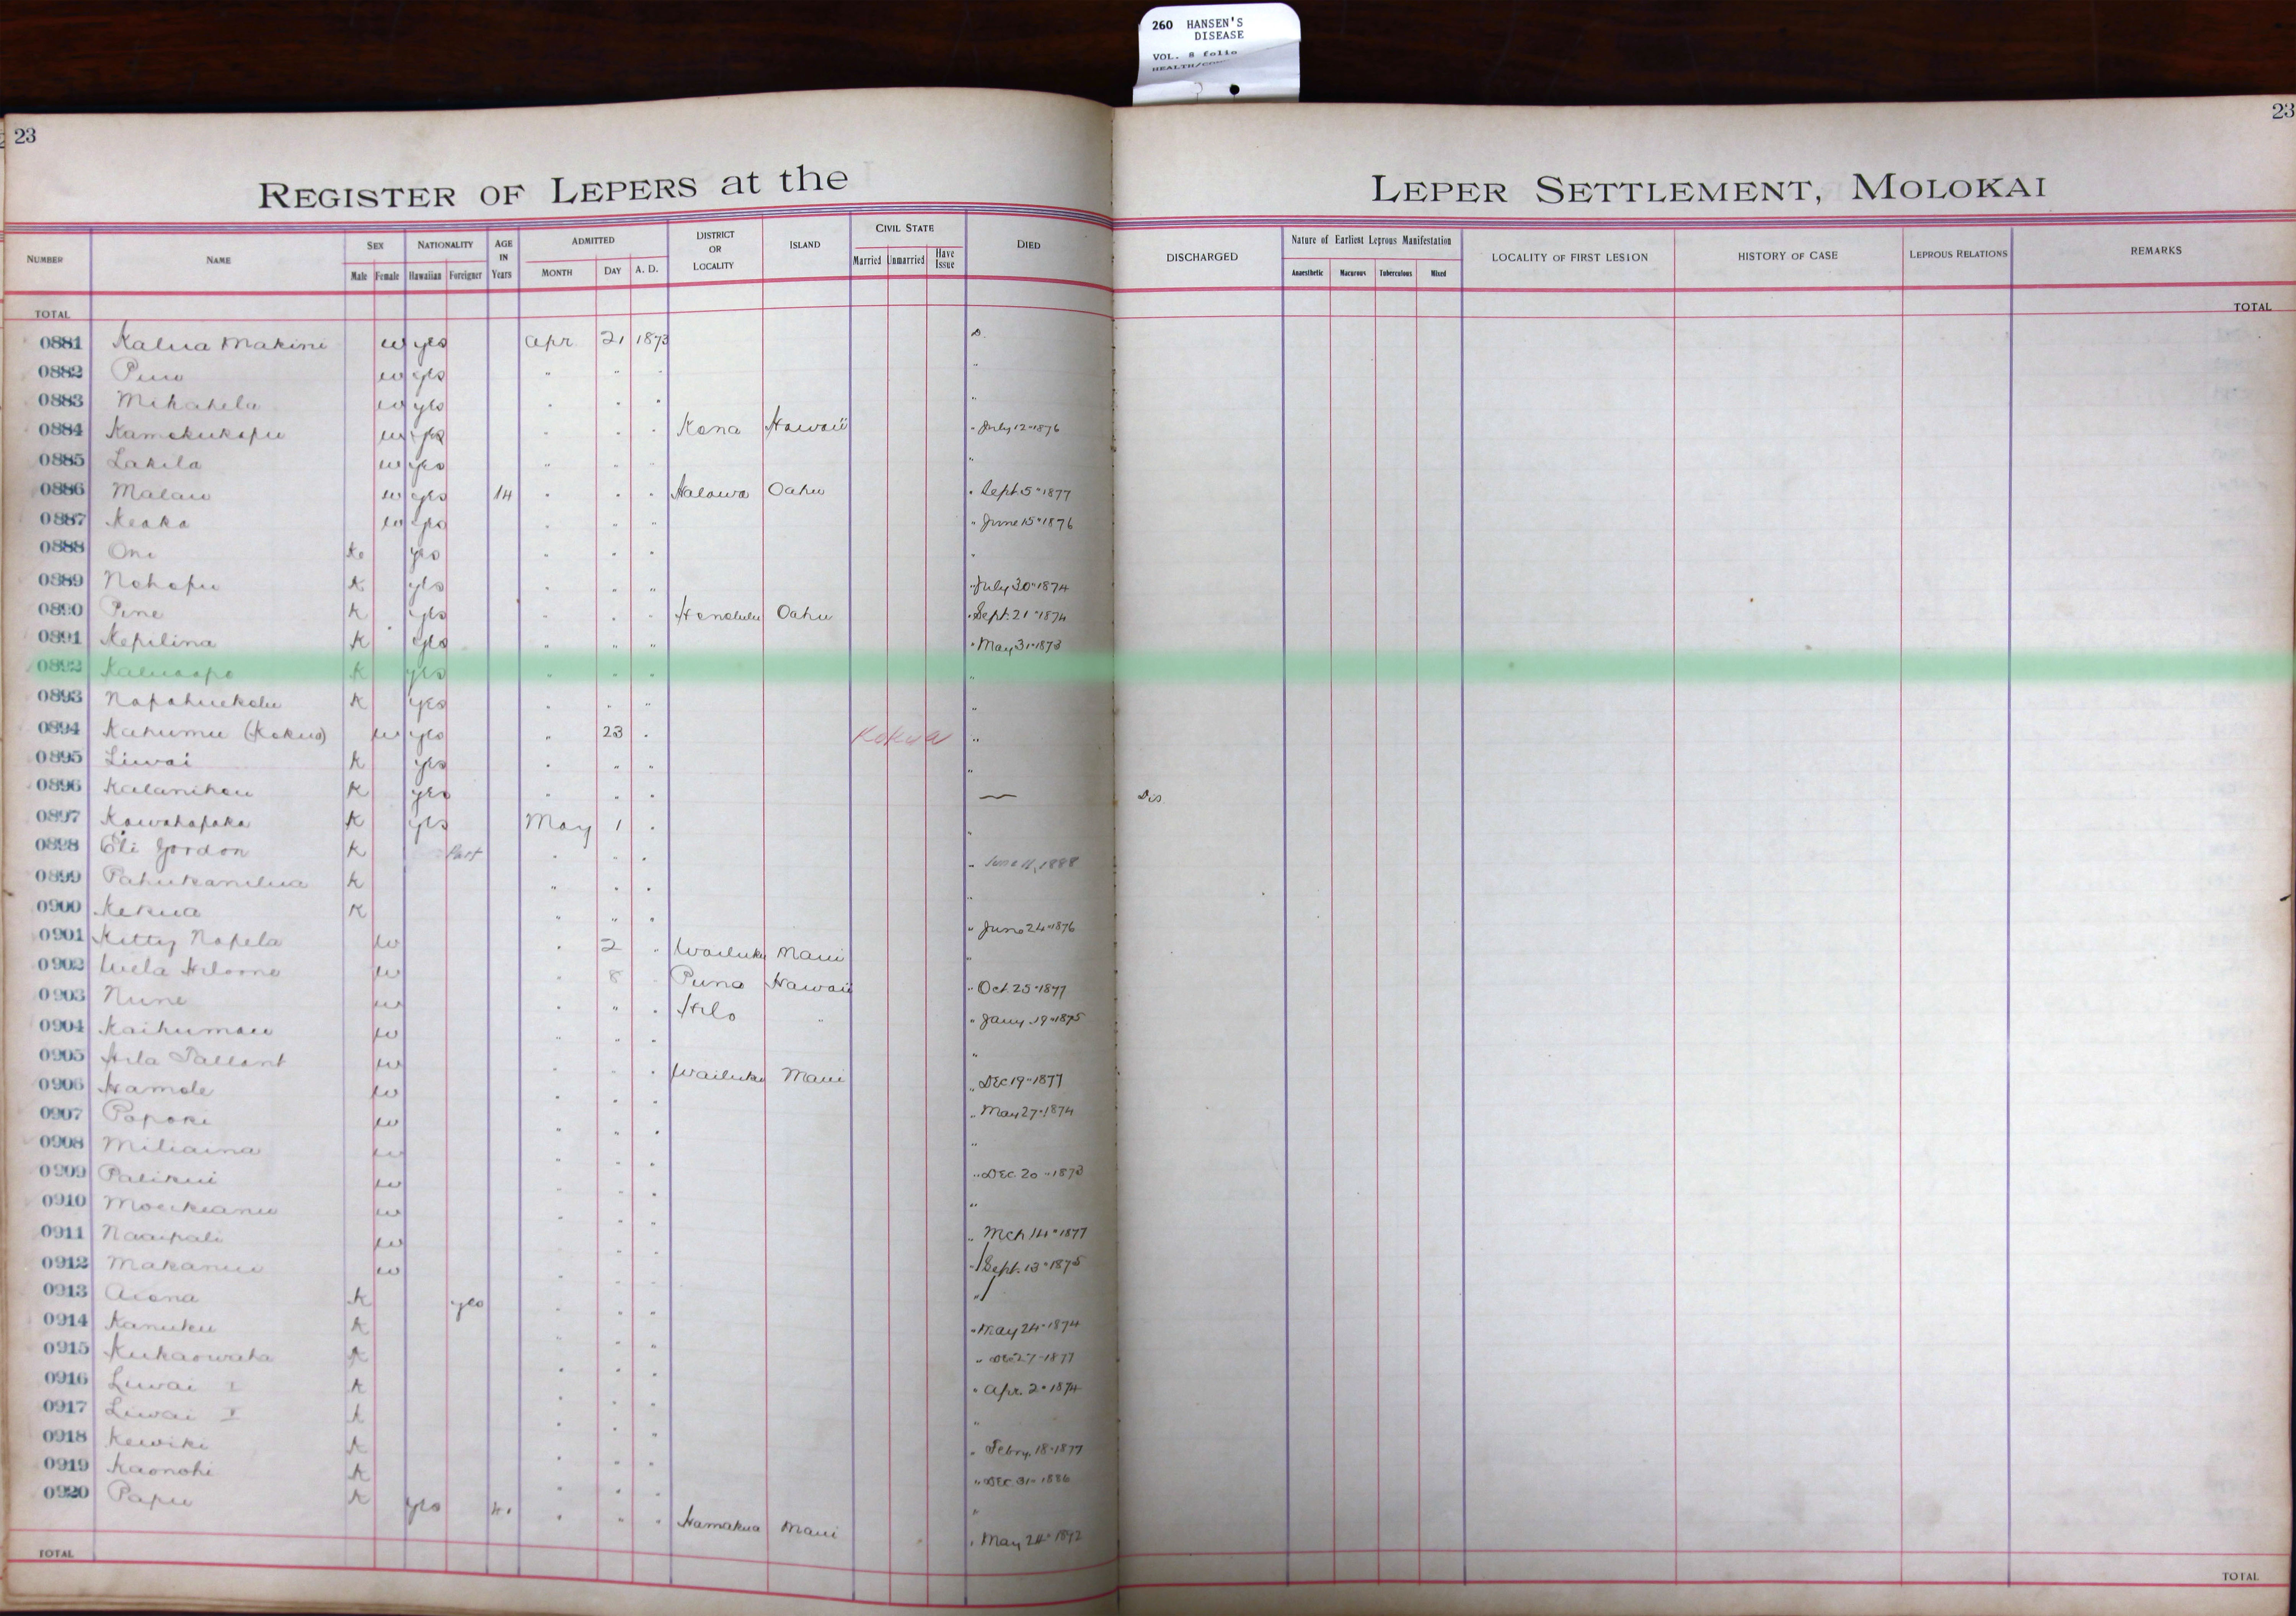 260 HANSEN'S
DISEASE
VOL. 8 folio
23
23
REGISTER OF LEPERS at the LEPER SETTLEMENT, MOLOKAI
NUMBER NAME SEX NATIONALITY AGE IN Years ADMITTED DISTRICT OR LOCALITY ISLAND CIVIL STATE DIED DISCHARGED Nature of Earliest Leprous Manifestation LOCALITY OF FIRST LESION HISTORY OF CASE LEPROUS RELATIONS REMARKS
Male Female Hawaiian Foreigner MONTH DAY A. D. Married Unmarried Have Issue Anaesthetic Macurous Tuberculous Mixed
TOTAL TOTAL
0881 Kalua Makini w yes Apr 21 1873 D.
0882 w yes " " " "
0883 Mikahela w yes " " " "
0884 Kamokukapu w yes " " " Kona Hawaii " July 12" 1876
0885 Lakila w yes " " " "
0886 Malau w yes 14 " " " Halawa Oahu " Sept. 5" 1877
0887 Keaka w yes " " " " June 15" 1876
0888 Oni K. yes " " " "
0889 Nohopu K yes " " " " July 30" 1874
0890 Pine K yes " " " Honolulu Oahu " Sept. 21" 1874
0891 Kepilina K yes " " " " May 31" 1873
0892 Kaluaapo K yes " " " "
0893 Napahuekolu K yes " " " "
0894 Kahumu (Kokua) w yes " 23 " Kokua "
0895 Liwai K yes " " " "
0896 Kalanihou K yes " " " — Dis
0897 Kawahapaka K yes May 1 " "
0898 Eli Gordon K Part " " " " June 11, 1888
0899 Pahukanilua K " " " "
0900 Kekua K " " " " June 24" 1876
0901 Kitty Napela w " 2 " Wailuku Maui "
0902 w " 8 Puna Hawaii " Oct. 25" 1877
0903 Nune w " " " Hilo " " Jany. 19" 1875
0904 Kaihumau w " " " "
0905 w " " " Wailuku Maui " Dec 19" 1877
0906 Hamole w " " " " May 27" 1874
0907 Popoki w " " " "
0908 Miliaina w " " " " Dec. 20" 1873
0909 Palikui w " " " "
0910 w " " " " Mch 14" 1877
0911 Naaipali w " " " " Sept. 13" 1875
0912 Makanui w " " " "
0913 Aiona K yes " " " " May 24" 1874
0914 Kanuku K " " " " Dec 27" 1877
0915 Kukaowaha K " " " " Apr. 2" 1874
0916 Liwai I K " " " "
0917 Liwai K " " " " Febry. 18" 1877
0918 Kewiki K " " " " Dec. 31" 1886
0919 Kaonohi K " " " "
0920 Papu K yes " " " Hamakua Maui " May 24" 1892
TOTAL TOTAL